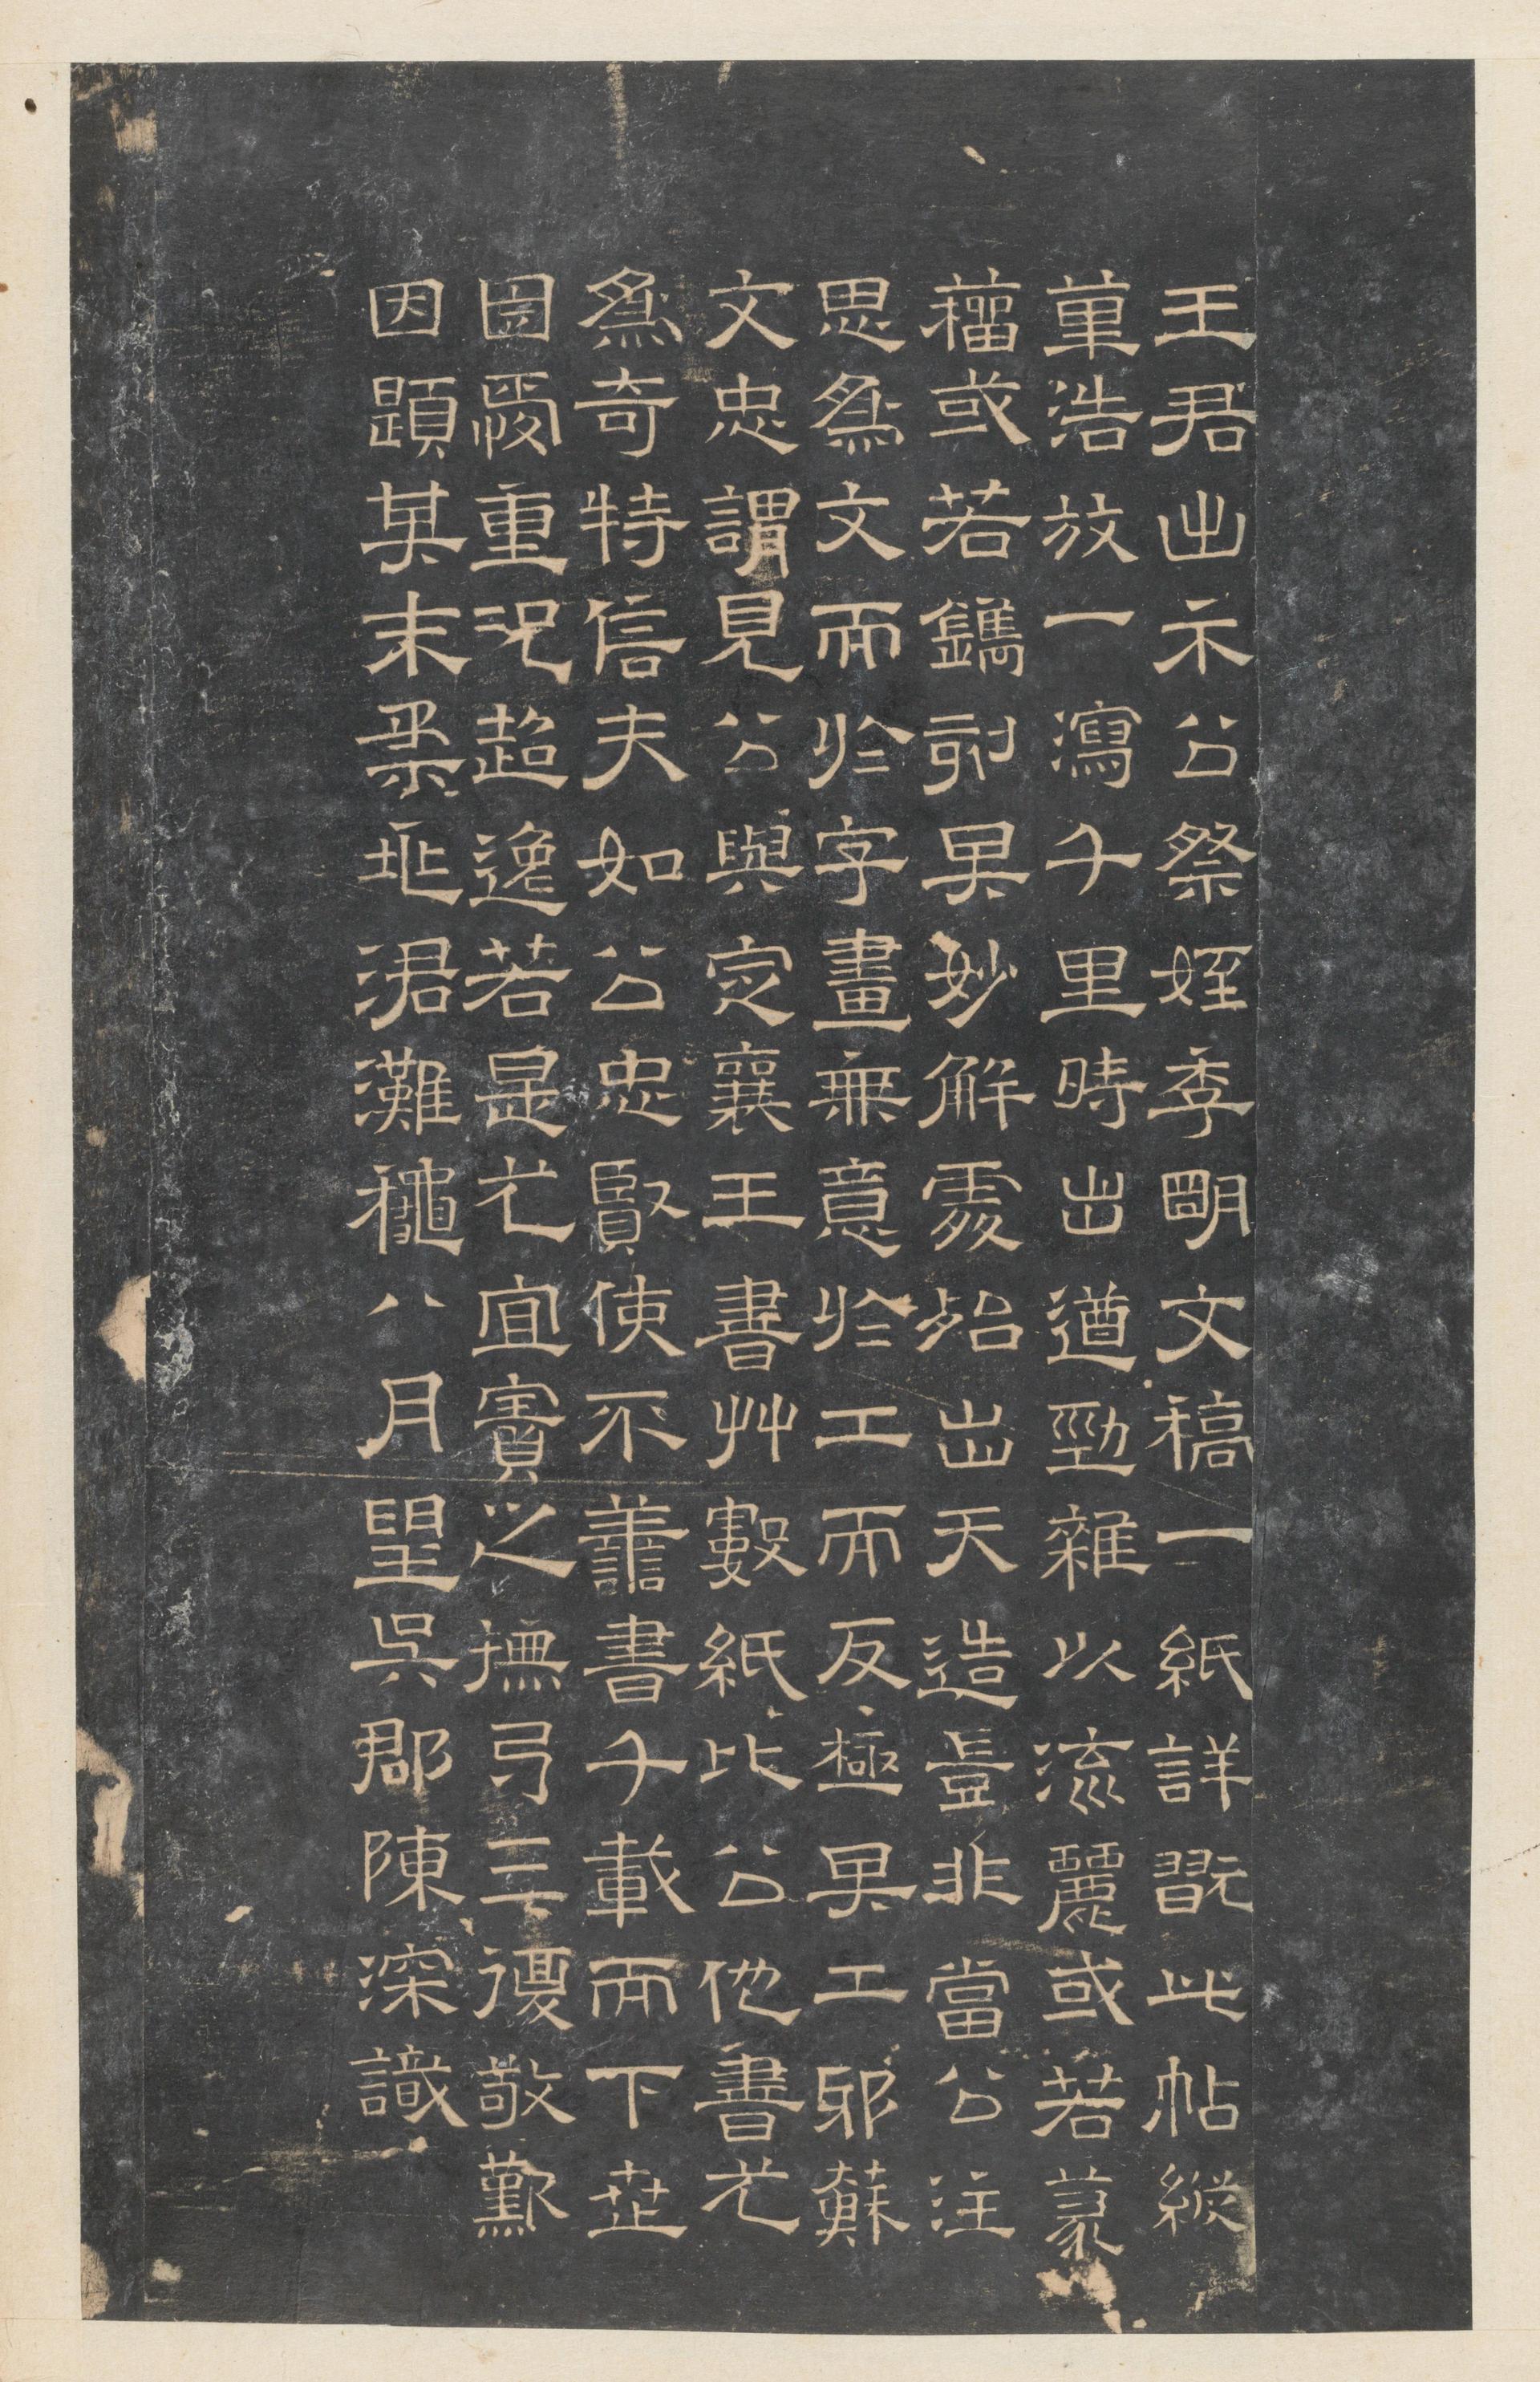 王君出示公祭姪季明文稿一紙詳翫此帖縱
筆浩放一瀉千里時出遒勁雜以流麗或若篆
籀或若鐫刻其妙解處殆出天造豈非當公注
思為文而於字畫無意於工而反極其工邪蘇
文忠謂見公與定襄王書艸數紙比公他書尤
為奇特信夫如公忠賢使不善書千載而下世
固愛重況超逸若是尤宜寶之撫弓三復敬歎
因題其末柔兆涒灘穐八月朢吳郡陳深識